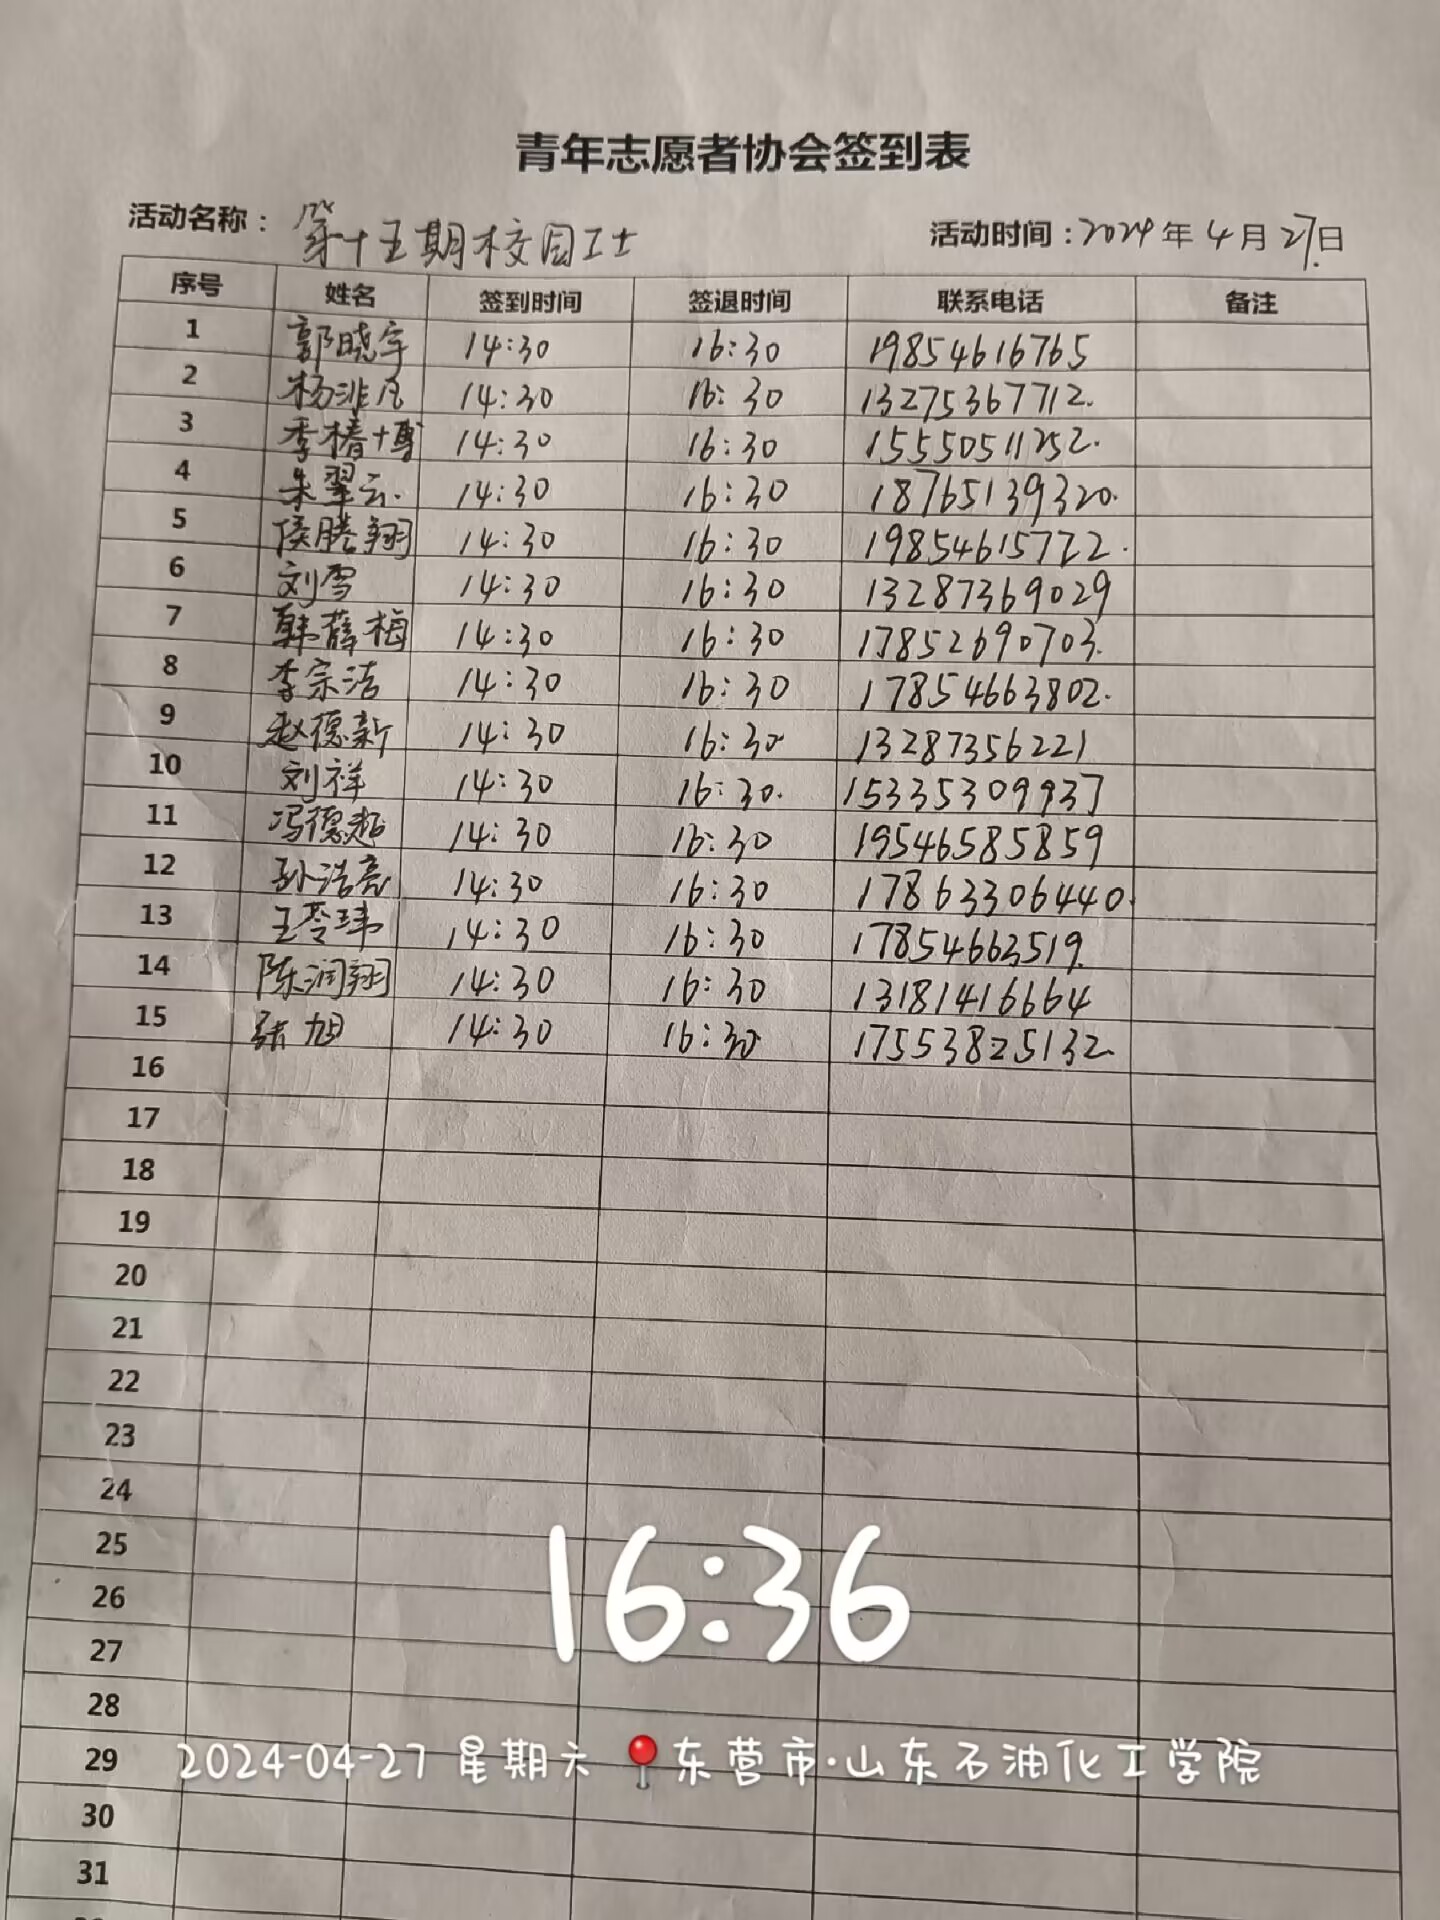 青年志愿者协会签到表
活动名称：第十五期校园卫士 活动时间：2024年4月27日
序号 姓名 签到时间 签退时间 联系电话 备注
1 郭晓宇 14:30 16:30 19854616765
2 杨淮凡 14:30 16:30 13275367712.
3 李椿博 14:30 16:30 15550511252.
4 朱翠云. 14:30 16:30 18765139320.
5 侯腾翔 14:30 16:30 19854615722.
6 刘雪 14:30 16:30 13287369029
7 韩薛梅 14:30 16:30 17852690703.
8 李宗洁 14:30 16:30 17854663802.
9 赵德新 14:30 16:30 13287356221
10 刘祥 14:30 16:30. 15335309937
11 冯德超 14:30 16:30 19546585859
12 孙浩亮 14:30 16:30 17863306440.
13 王苓玮 14:30 16:30 17854663519.
14 陈润翔 14:30 16:30 13181416664
15 张旭 14:30 16:30 17553825132.
16
17
18
19
20
21
22
23
24
25
26
27
28
29
30
31
16:36
2024-04-27 星期六 东营市·山东石油化工学院